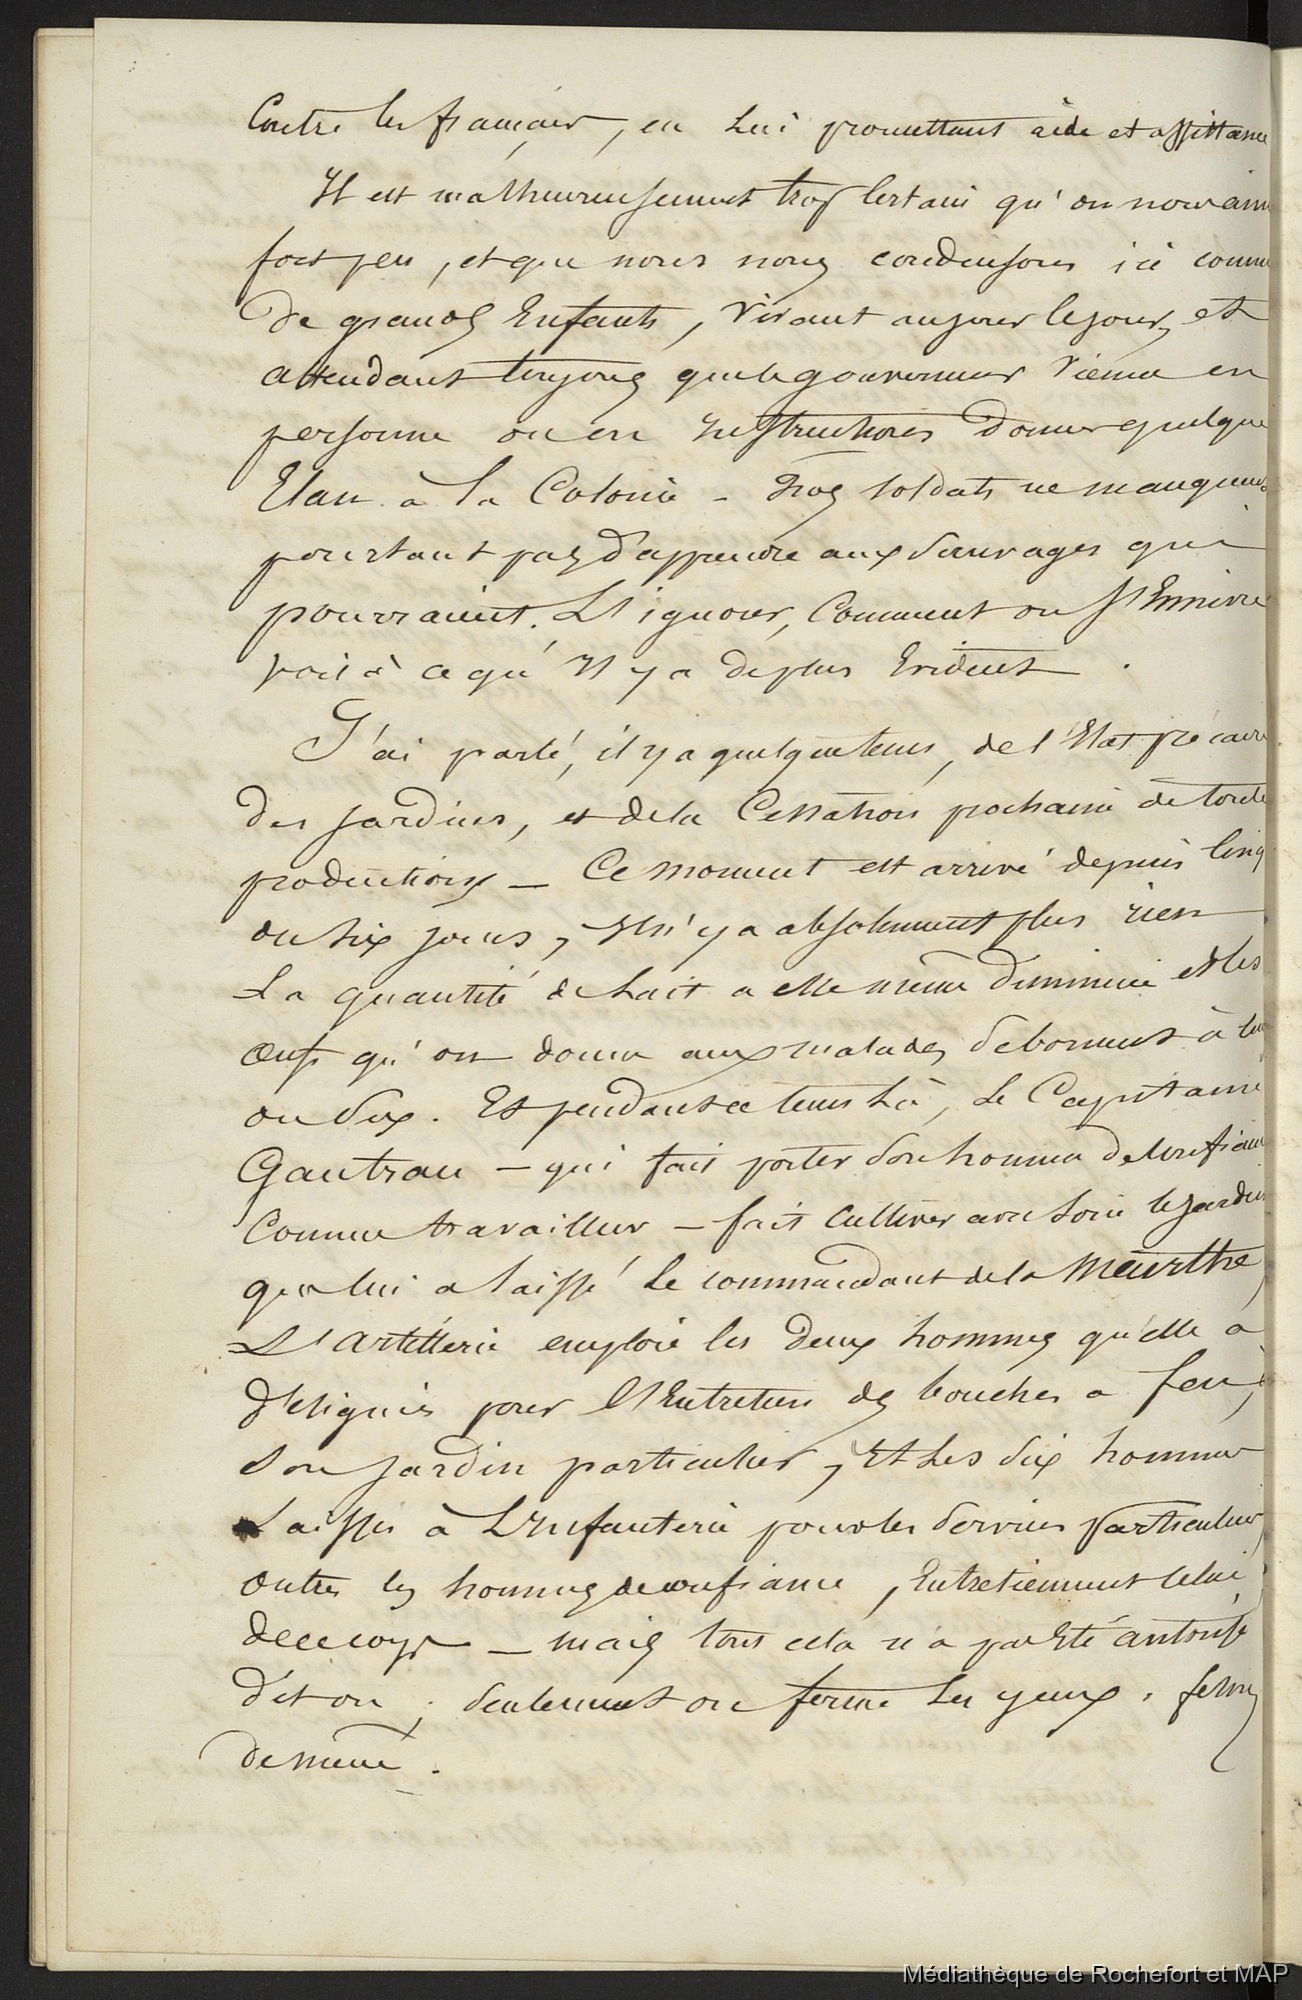 Contre les français, en Lui promettant aide et assistance
Il est malheureusement trop Certain qu'on nous aime
fort peu, et que nous nous conduisons ici comme
de grands Enfants, Vivant au jour le jour, et
attendant toujours que le gouverneur Vienne en
personne ou en Instructions Donner quelque
Elan à la Colonie - Nos soldats ne manquent
pourtant pas d'apprendre aux Sauvages qui
pourraient L'ignorer, Comment on s'Ennivre
voilà ce qu'Il y a de plus Evident.
J'ai parlé, il y a quelque tems, de l'Etat précaire
Des jardins, et de la Cessation prochaine de toute
production — Ce moment est arrivé depuis Cinq
ou Six jours, Il n'y a absolument plus rien
La quantité de Lait a elle même Diminué et les
œufs qu'on donne aux malades Se bornent à un
ou Deux. Et pendant ce tems Là, Le Capitaine
Gautrau — qui fait porter Son homme De Confiance
Comme travailleur — fait Cultiver avec Soin le jardin
que lui a laissé Le commandant de la Meurthe,
L'Artillerie emploie les Deux hommes qu'elle a
Désignés pour L'Entretien des bouches a feu,
Son jardin particulier, Et Les Six hommes
Laissés à L'Infanterie pour les Services particuliers,
Outre les hommes de confiance, Entretiennent Celui
de ce corps — mais tout cela n'a pas Eté autorisé
Dit on ; Seulement on ferme Les yeux. fesons
De même.
Médiathèque de Rochefort et MAP